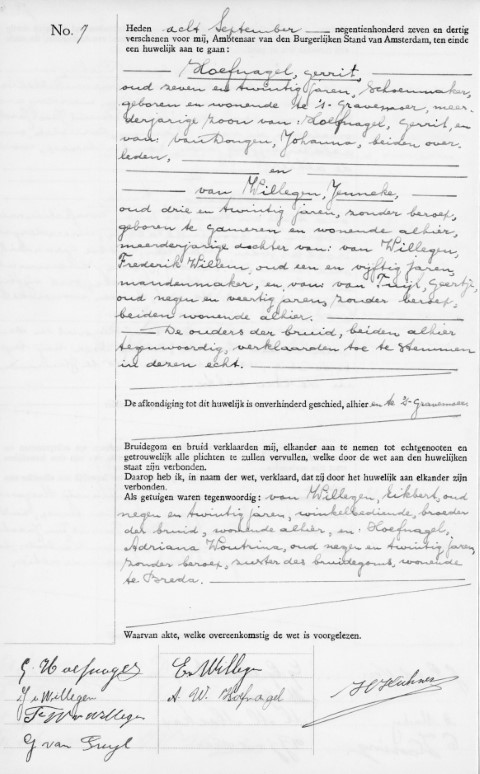 No. 7
Heden acht September negentienhonderd zeven en dertig
verschenen voor mij, Ambtenaar van den Burgerlijken Stand van Amsterdam, ten einde
een huwelijk aan te gaan:
Hoefnagel, Gerrit,
oud zeven en twintig jaren, schoenmaker,
geboren en wonende te 's-Gravemoer, meer-
derjarige zoon van: Hoefnagel, Gerrit, en
van: van Dongen, Johanna, beiden over-
leden,
en
van Willegen, Jenneke,
oud drie en twintig jaren, zonder beroep,
geboren te Gameren en wonende alhier,
meerderjarige dochter van: van Willegen,
Frederik Willem, oud een en vijftig jaren,
mandenmaker, en van: van Tuijl, Geertje,
oud negen en veertig jaren, zonder beroep,
beiden wonende alhier.
De ouders der bruid, beiden alhier
tegenwoordig, verklaarden toe te stemmen
in dezen echt.
De afkondiging tot dit huwelijk is onverhinderd geschied, alhier en te 's-Gravemoer
Bruidegom en bruid verklaarden mij, elkander aan te nemen tot echtgenooten en
getrouwelijk alle plichten te zullen vervullen, welke door de wet aan den huwelijken
staat zijn verbonden.
Daarop heb ik, in naam der wet, verklaard, dat zij door het huwelijk aan elkander zijn
verbonden.
Als getuigen waren tegenwoordig: van Willegen, Eikbert, oud
negen en twintig jaren, winkelbediende, broeder
der bruid, wonende alhier, en: Hoefnagel,
Adriana Woutrina, oud negen en twintig jaren,
zonder beroep, zuster des bruidegoms, wonende
te Breda.
Waarvan akte, welke overeenkomstig de wet is voorgelezen.
G. Hoefnagel E v Willegen
J v Willegen A. W. Hofnagel
F W v Willegen
G van Tuyl